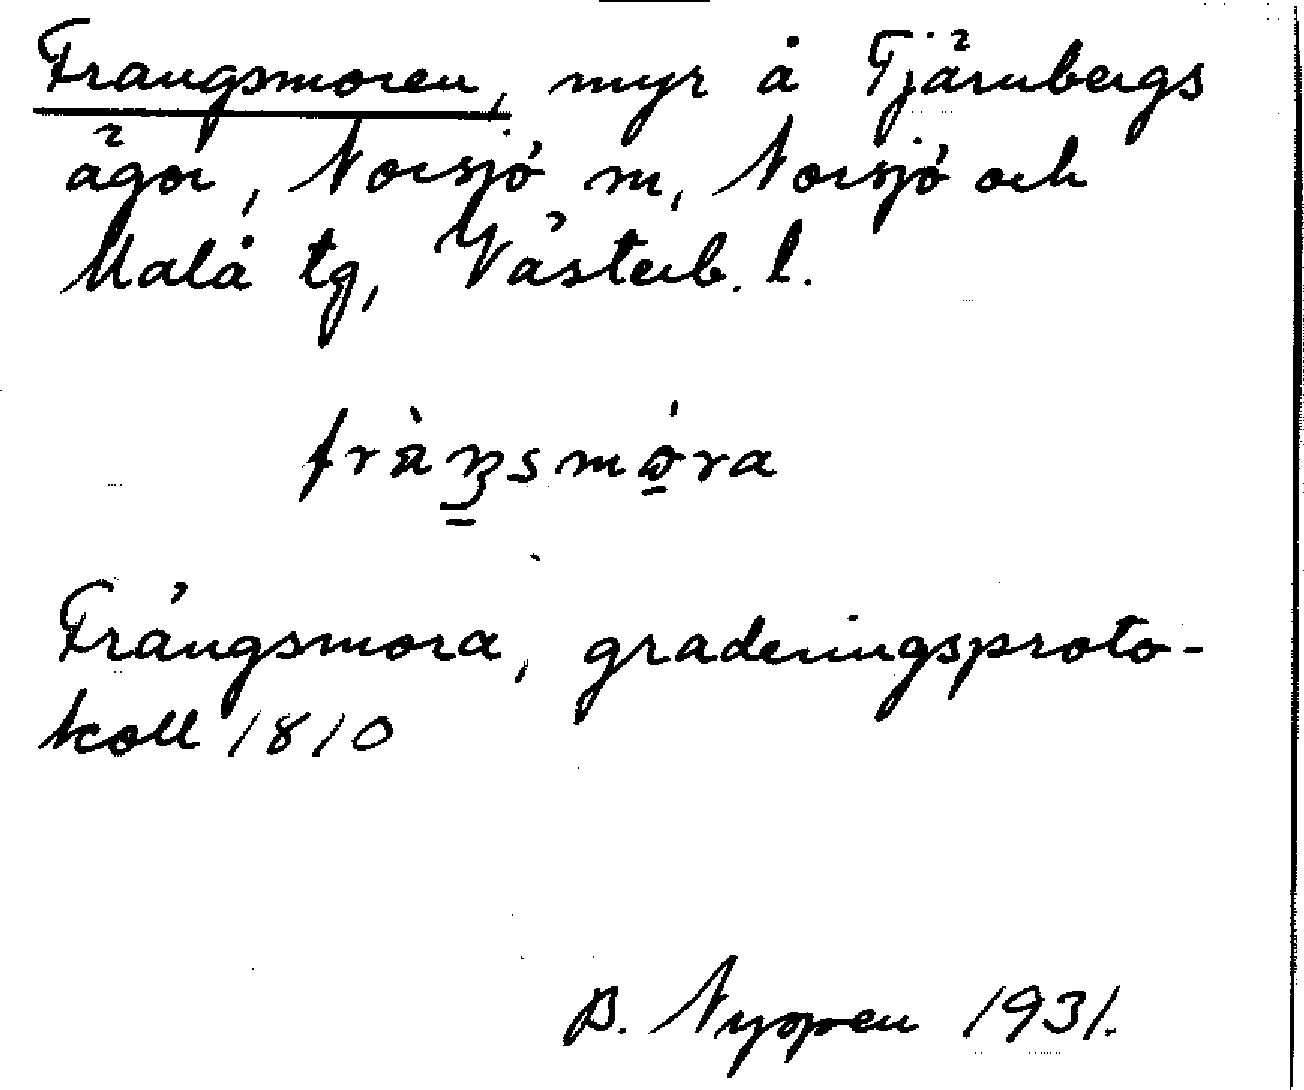 Frangsmoren, myr å Tjärnbergs
ägor, Norsjö sn, Norsjö och
Malå tg, Västerb. l.
Frängsmora, graderingsproto-
koll 1810
B. Nyopen 1931.